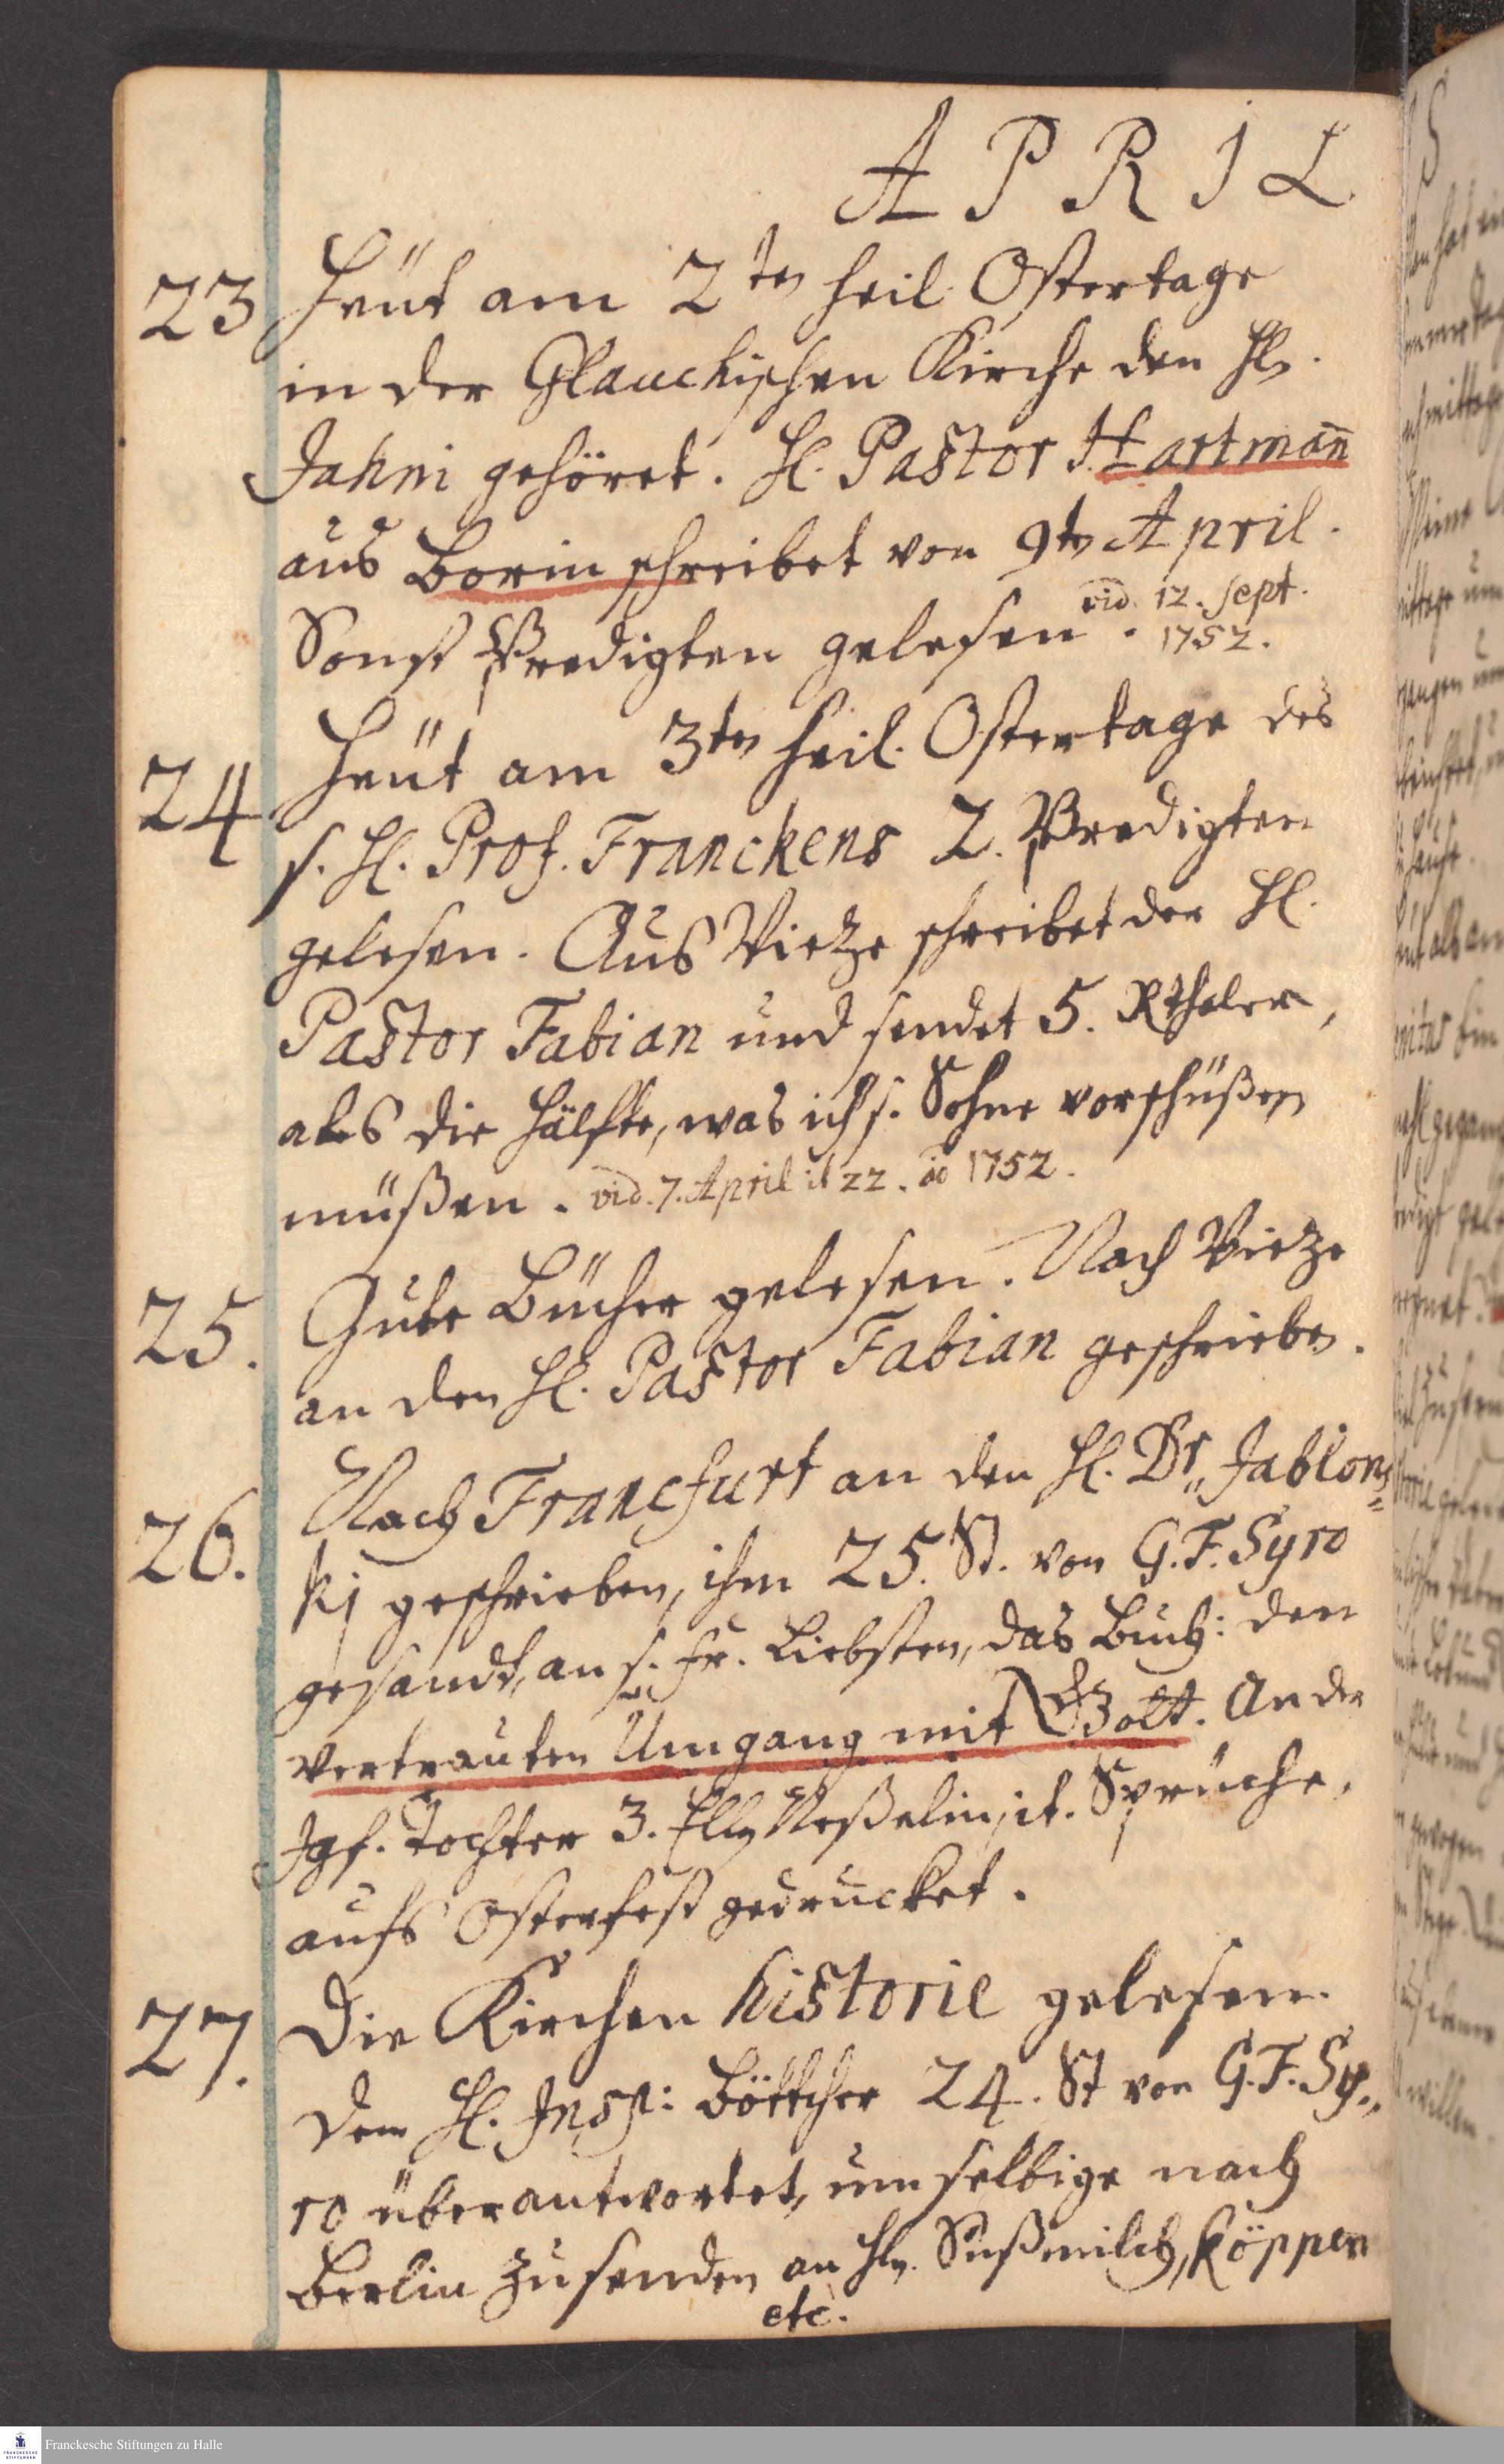 APRIL
23 Heüt am 2ten heil. Ostertage
in der Glauchischen Kirche den Hln.
Jahni gehöret. Hl. Pastor Hartman̄
aus Borin schreibet von 9ten April.
Sonst Predigten gelesen. vid. 12. Sept.
1752.
24 Heüt am 3ten heil. Ostertage des
s. Hl. Prof. Franckens 2. Predigten
gelesen. Aus Vietze schreibet der Hl.
Pastor Fabian und sendet 5. Rthaler,
als die Hälfte, was ich s. Sohne vorschüßen
müßen. vid. 7. April it 22. ao 1752.
25. Gute Bücher gelesen. Nach Vietze
an den Hl. Pastor Fabian geschrieben.
26. Nach Francfurt an den Hl. Dr. Jablons=
kj geschrieben, ihm 25. St. von G. F. Syro
gesandt, an s. Fr. Liebsten, das Buch: den
vertrauten Umgang mit Gott. An der
Jgf. Tochter 3. Elln Neßelin, it. Sprüche,
aufs Osterfest gedrucket.
27. Die Kirchen historie gelesen.
Dem Hl. Insp: Böttcher 24. St von G. F. Sy„
ro überantwortet, um selbige nach
Berlin zu senden an Hln. Süßmilch, Köppen
etc.
FRANCKESCHE STIFTUNGEN
Franckesche Stiftungen zu Halle